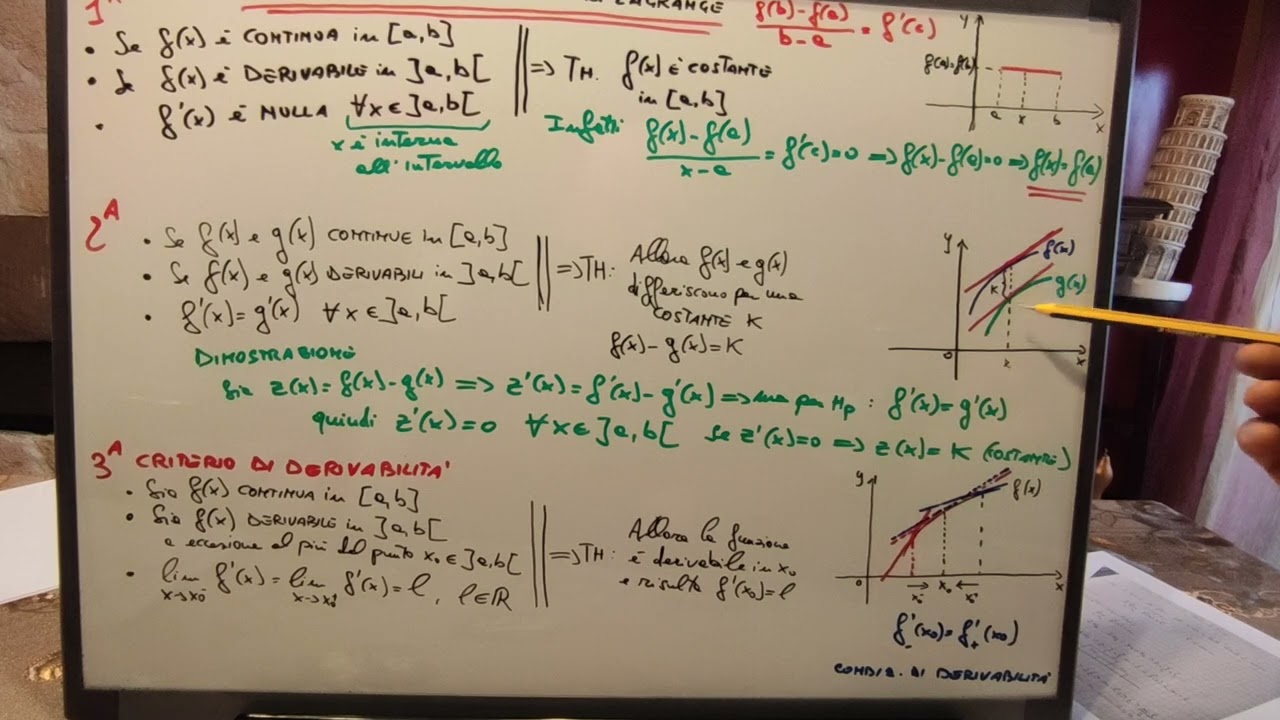 1ª LAGRANGE f(b)-f(a)/b-a = f'(c)
• Se f(x) è CONTINUA in [a,b]
• Se f(x) è DERIVABILE in ]a,b[
• f'(x) è NULLA ∀x∈]a,b[
x è interno
all'intervallo
=> TH. f(x) È COSTANTE
in [a,b]
Infatti f(x)-f(a)/x-a = f'(c)=0 => f(x)-f(a)=0 => f(x)=f(a)
y
f(a)=f(b)
a x b x
2ᴬ
• Se f(x) e g(x) CONTINUE in [a,b]
• Se f(x) e g(x) DERIVABILI in ]a,b[
• f'(x)=g'(x) ∀x∈]a,b[
=> TH: Allora f(x) e g(x)
differiscono per una
COSTANTE K
f(x)-g(x)=K
y
f(x)
K g(x)
x x
DIMOSTRAZIONE
Sia z(x)=f(x)-g(x) => z'(x)=f'(x)-g'(x) => ma per Hp: f'(x)=g'(x)
quindi z'(x)=0 ∀x∈]a,b[ se z'(x)=0 => z(x)=K (COSTANTE)
3ᴬ CRITERIO DI DERIVABILITA'
• Sia f(x) CONTINUA in [a,b]
• Sia f(x) DERIVABILE in ]a,b[
a eccezione al più del punto x₀∈]a,b[
• lim f'(x) = lim f'(x) = l, l∈ℝ
x→x₀⁻ x→x₀⁺
=> TH: Allora la funzione
è derivabile in x₀
e risulta f'(x₀)=l
y
f(x)
x
x₀⁻ x₀ x₀⁺
f'₋(x₀)=f'₊(x₀)
CONDIZ. DI DERIVABILITA'